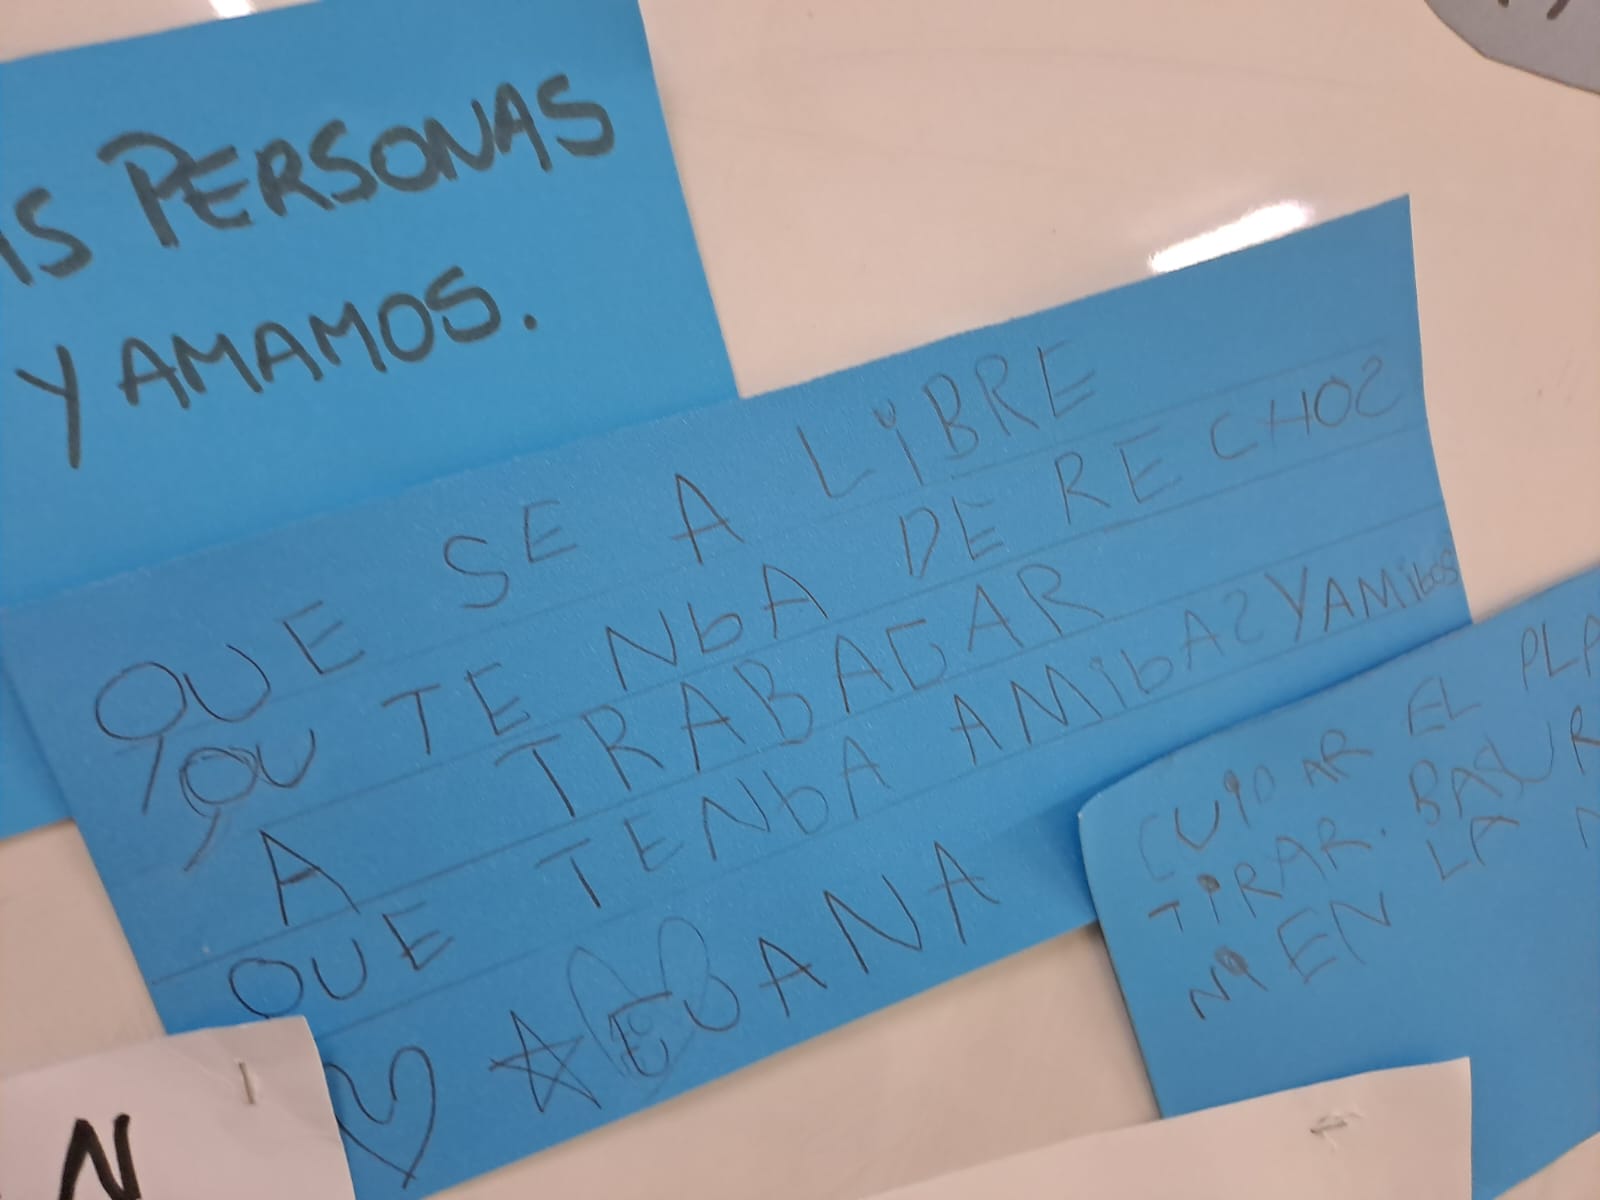 IS PERSONAS
Y AMAMOS.
QUE SE A LIBRE
QU TE NbA DE RE CHOS
A TRABAGAR
QUE TENbA AMibAS Y AMibOS
EUANA
CUIDAR EL PLA
TIRAR. BASUR
NI EN LA N
N